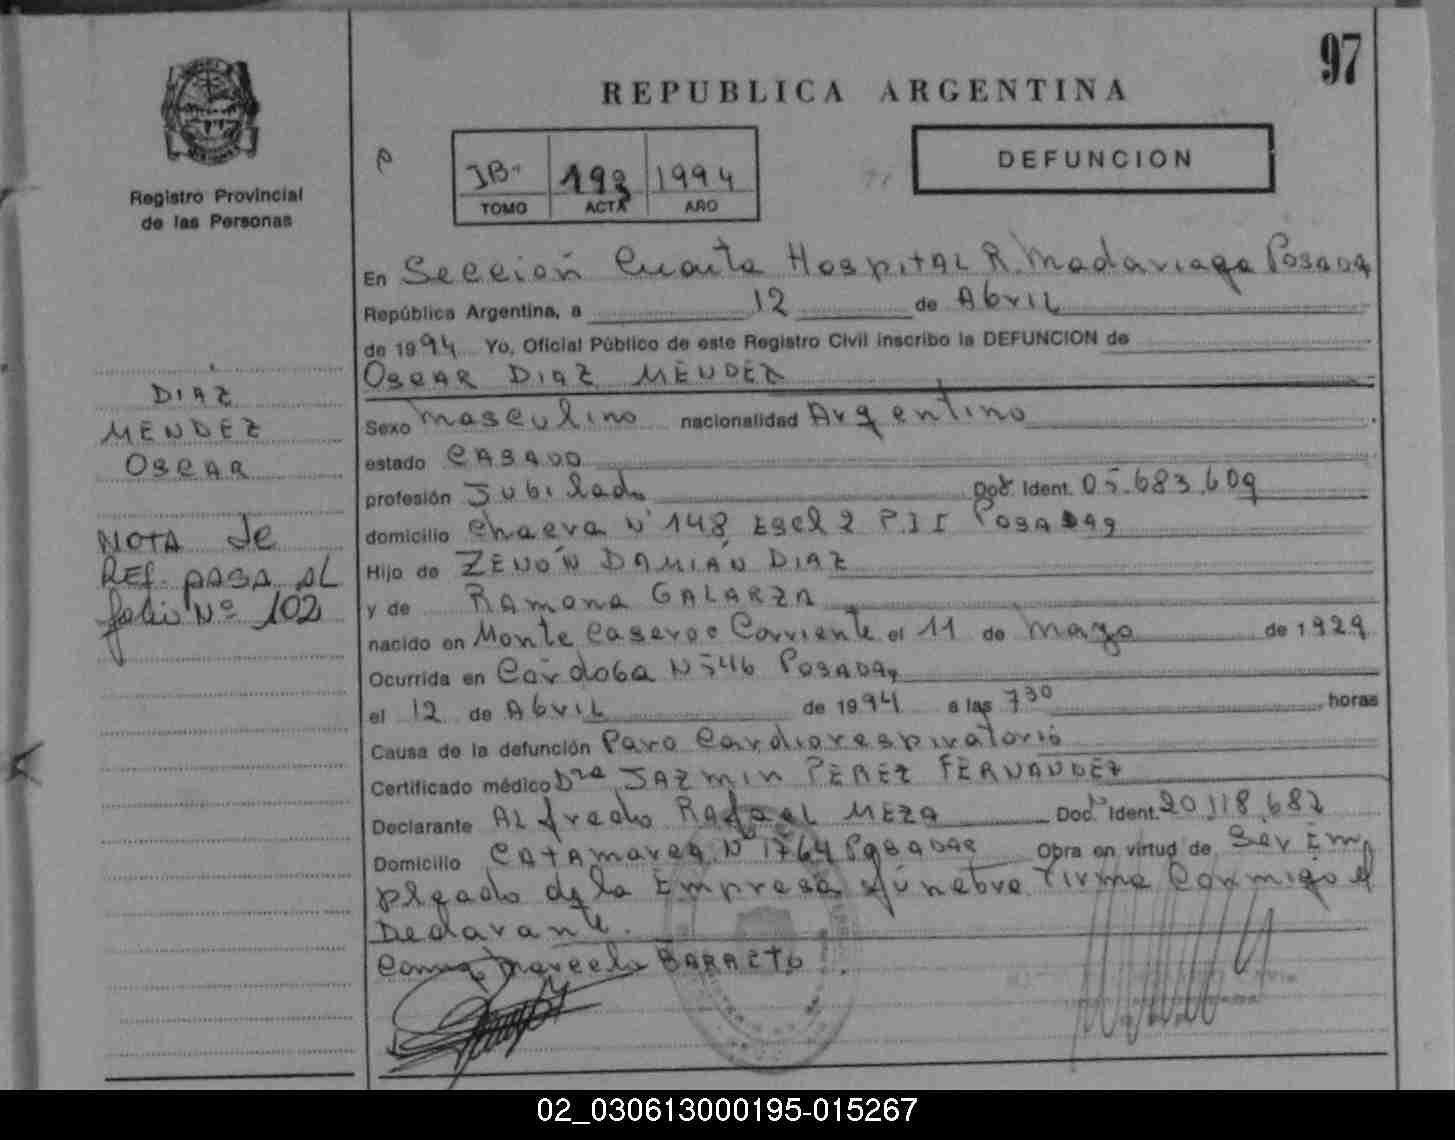 97
REPUBLICA ARGENTINA
DEFUNCION
Registro Provincial
de las Personas
193 1994
TOMO ACTA AÑO
En Sección Cuarta Hospital R. Madariaga Posadas
República Argentina, a 12 de Abril
de 1994 Yo, Oficial Público de este Registro Civil inscribo la DEFUNCION de
OSCAR DIAZ MENDEZ
DIAZ
MENDEZ
OSCAR
NOTA de
REF. PASA AL
folio Nº 102
Sexo Masculino nacionalidad Argentino
estado CASADO
profesión Jubilado Doc. Ident. 05.683.609
domicilio N° 148 Esel 2 P.II Posadas
Hijo de ZENÓN DAMIÁN DIAZ
y de RAMONA GALARZA
nacido en Monte Caseros Corriente el 11 de de 1929
Ocurrida en Córdoba N 546 Posadas
el 12 de Abril de 1994 a las 7 30 horas
Causa de la defunción Paro Cardiorespiratorio
Certificado médico Dra JAZMIN PEREZ FERNANDEZ
Declarante Alfredo Rafael MEZA Doc. Ident. 20.118.682
Domicilio CATAMARCA N° 1764 Posadas Obra en virtud de Ser Em
pleado de la Empresa fúnebre. Firma Conmigo el
Declarante.
Marcelo BARRETO
02_030613000195-015267